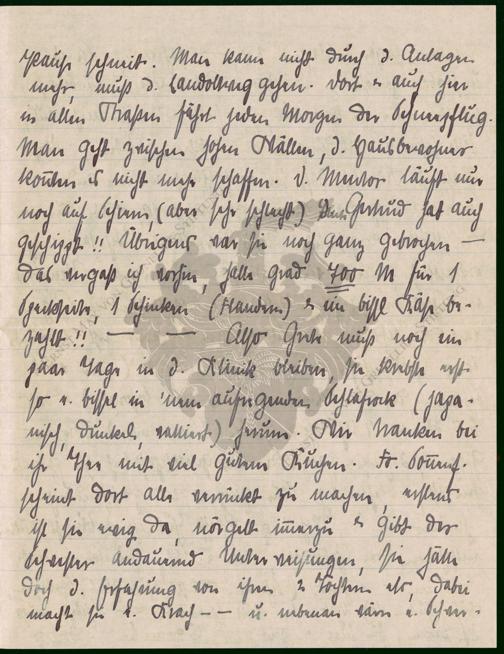 schneit. Man kann nicht durch d. Anlagen
mehr, muß d. Landolweg gehen. Dort u. auch hier
in allen Straßen fährt jeden Morgen der Schneepflug.
Man geht zwischen hohen Wällen, d. Hausbewohner
konnten es nicht mehr schaffen. D. Mentor läuft nur
noch auf Schiern, (aber sehr schlecht) Gertrud hat auch
geschippt!! Übrigens war sie noch ganz gebrochen —
das vergaß ich vorhin, hatte grad 700 M für 1
Speckseite, 1 Schinken (Handern) u. ein bissl Käse be-
zahlt!! — — Also Grete muß noch ein
paar Tage in d. Klinik bleiben, sie krebste erst
so e. bissel in 'nem aufregenden Schlafrock (japa-
nisch, dunkel, wattiert) herum. Wir tranken bei
ihr Thee mit viel gutem Kuchen. Fr.
scheint dort alle verrückt zu machen, erstens
ist sie ewig da, nörgelt immerzu u. gibt der
Schwester andauernd Unterweisungen, sie hätte
doch d. Erfahrung von ihren 2 Töchtern etc, dabei
macht sie e. Krach — — u. nebenan wäre e. Schwer-